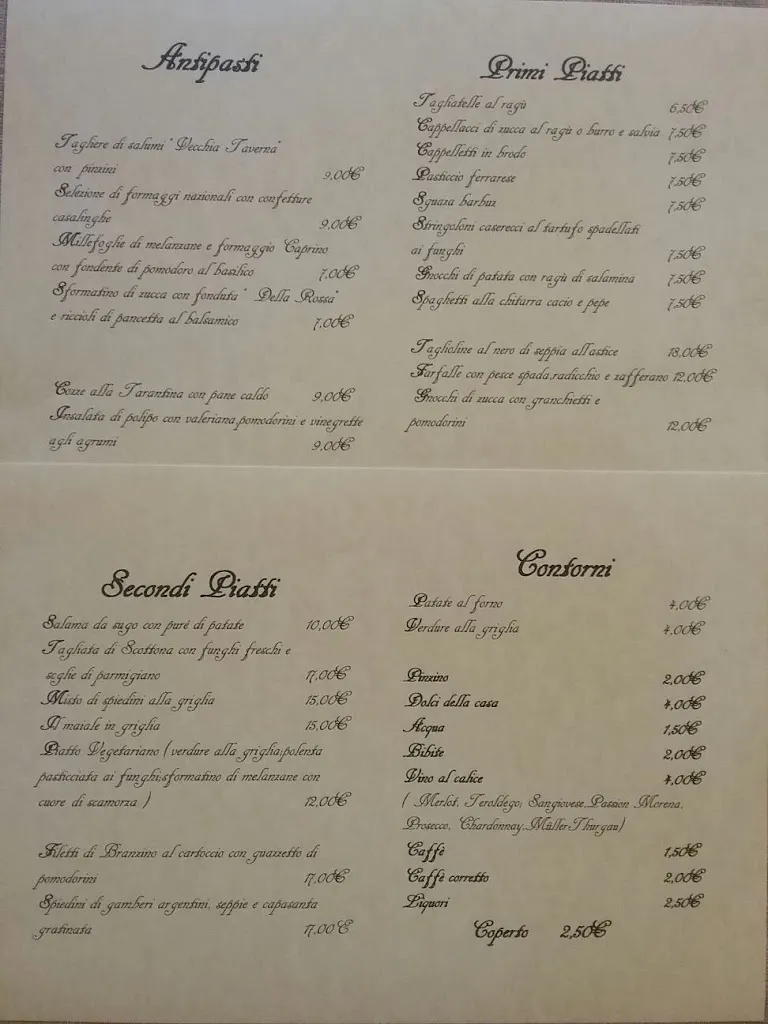 Antipasti
Tagliere di salumi" Vecchia Taverna"
con pinzini 9,00€
Selezione di formaggi nazionali con confetture
casalinghe 9,00€
Millefoglie di melanzane e formaggio Caprino
con fondente di pomodoro al basilico 7,00€
Sformatino di zucca con fonduta" Della Rossa"
e riccioli di pancetta al balsamico 7,00€
Cozze alla Tarantina con pane caldo 9,00€
Insalata di polipo con valeriana,pomodorini e vinegrette
agli agrumi 9,00€
Primi Piatti
Tagliatelle al ragù 6,50€
Cappellacci di zucca al ragù o burro e salvia 7,50€
Cappelletti in brodo 7,50€
Pasticcio ferrarese 7,50€
Sguaza barbuz 7,50€
Stringoloni caserecci al tartufo spadellati
ai funghi 7,50€
Gnocchi di patata con ragù di salamina 7,50€
Spaghetti alla chitarra cacio e pepe 7,50€
Taglioline al nero di seppia all'astice 18,00€
Farfalle con pesce spada,radicchio e zafferano 12,00€
Gnocchi di zucca con granchietti e
pomodorini 12,00€
Secondi Piatti
Salama da sugo con puré di patate 10,00€
Tagliata di Scottona con funghi freschi e
scglie di parmigiano 17,00€
Misto di spiedini alla griglia 15,00€
Il maiale in griglia 15,00€
Piatto Vegetariano ( verdure alla griglia;polenta
pasticciata ai funghi;sformatino di melanzane con
cuore di scamorza ) 12,00€
Filetti di Branzino al cartoccio con guazzetto di
pomodorini 17,00€
Spiedini di gamberi argentini, seppie e capasanta
gratinata 17,00 €
Contorni
Patate al forno 4,00€
Verdure alla griglia 4,00€
Pinzino 2,00€
Dolci della casa 4,00€
Acqua 1,50€
Bibite 2,00€
Vino al calice 4,00€
( Merlot, Teroldego, Sangiovese,Passion Morena,
Prosecco, Chardonnay,Müller-Thurgau)
Caffè 1,50€
Caffè corretto 2,00€
Liquori 2,50€
Coperto 2,50€